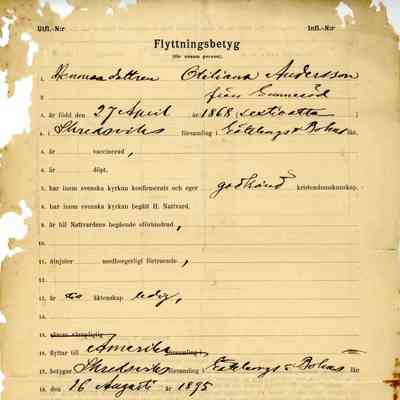 Utfl.-N:r Infl.-N:r
Flyttningsbetyg
(för ensam person).
1. Hemmadottren Otiliana Andersson
från
2. är född den 27 April år 1868 sextioåtta
3. i Skredsviks församling i Göteborgs o Bohus län,
4. är vaccinerad,
5. är döpt,
6. har inom svenska kyrkan konfirmerats och eger godkänd kristendomskunskap,
8. har inom svenska kyrkan begått H. Nattvard,
9. är till Nattvardens begående oförhindrad,
10.
11. åtnjuter medborgerligt förtroende,
12.
13. är till äktenskap ledig,
14.
15.
16. flyttar till Amerika församling i
17. betygar Skredsviks församling Göteborgs o Bohus län
18. den 16 Augusti år 1895